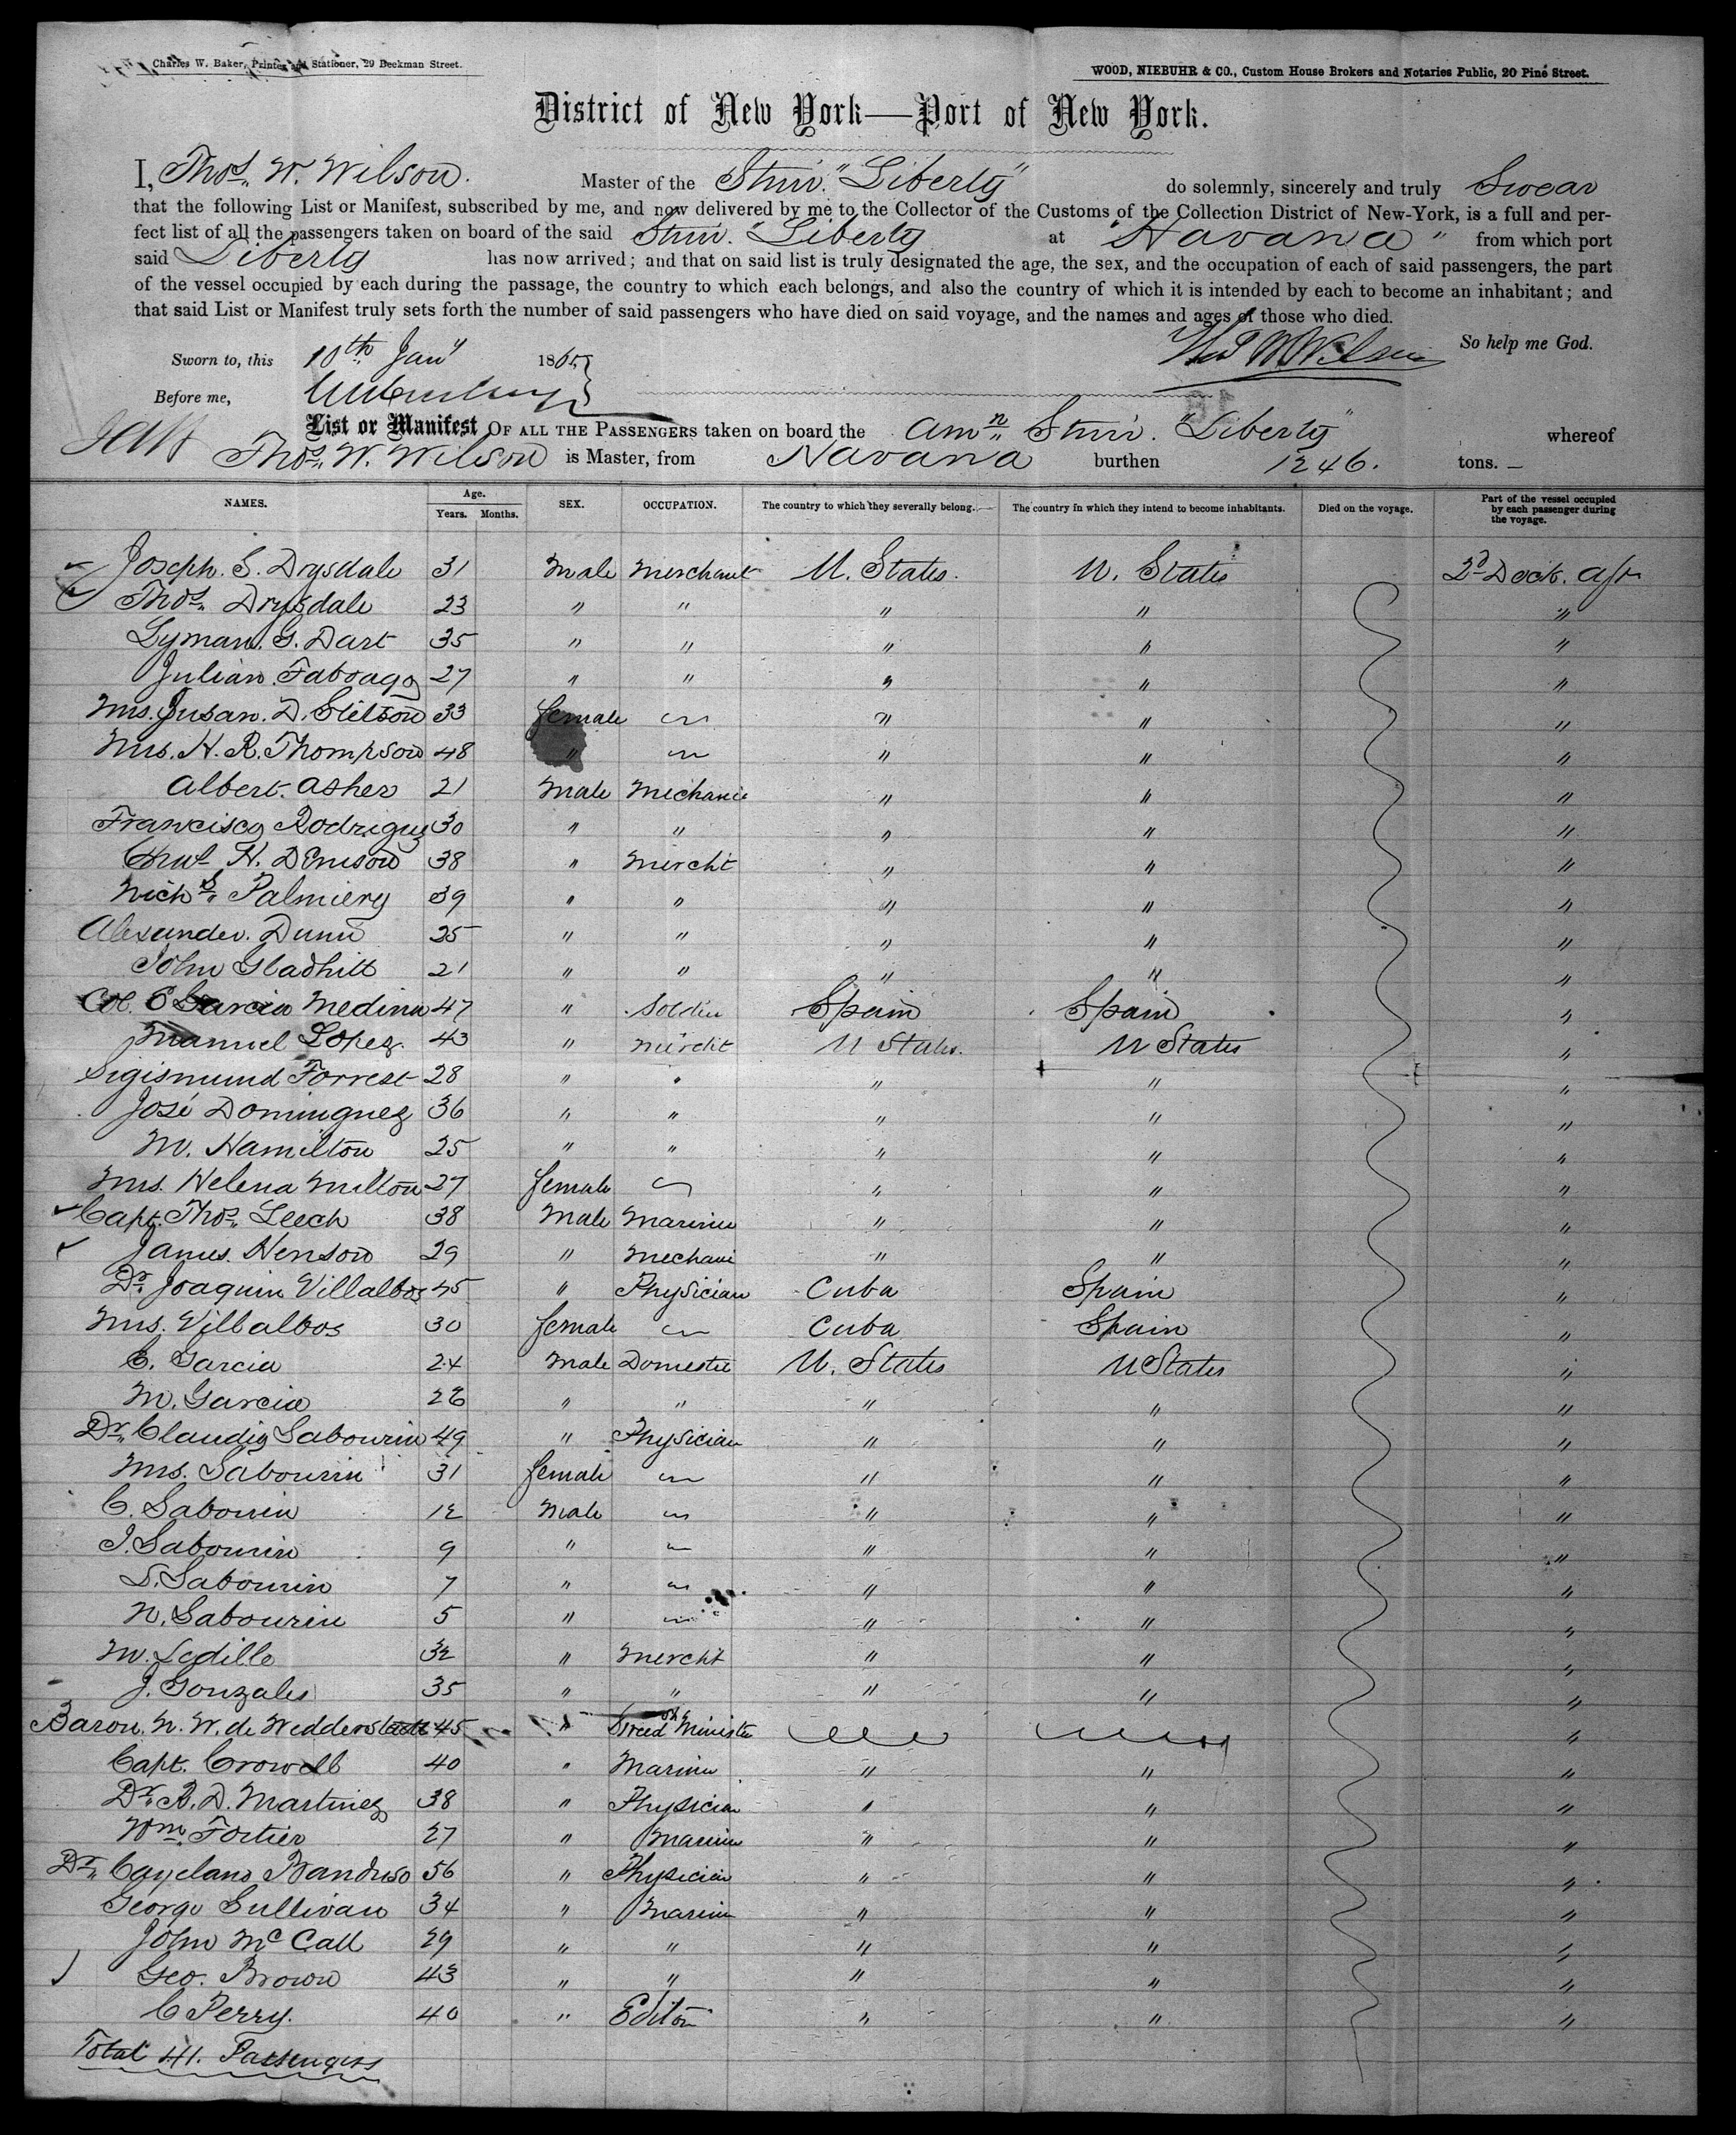 Charles W. Baker, Printer and Stationer, 29 Beekman Street.
WOOD, NIEBUHR & CO., Custom House Brokers and Notaries Public, 20 Pine Street.
District of New York—Port of New York.
I, Thos. W. Wilson. Master of the Stmr. "Liberty" do solemnly, sincerely and truly Swear
that the following List or Manifest, subscribed by me, and now delivered by me to the Collector of the Customs of the Collection District of New-York, is a full and per-
fect list of all the passengers taken on board of the said Stmr. "Liberty at "Havana" from which port
said Liberty has now arrived; and that on said list is truly designated the age, the sex, and the occupation of each of said passengers, the part
of the vessel occupied by each during the passage, the country to which each belongs, and also the country of which it is intended by each to become an inhabitant; and
that said List or Manifest truly sets forth the number of said passengers who have died on said voyage, and the names and ages of those who died.
Thos W Wilson So help me God.
Sworn to, this 10th Jany 1865
Before me,
List or Manifest OF ALL THE PASSENGERS taken on board the Amn Stmr. "Liberty" whereof
Thos. W. Wilson is Master, from Havana burthen 1246. tons.
NAMES. Age. Years. Months. SEX. OCCUPATION. The country to which they severally belong. The country in which they intend to become inhabitants. Died on the voyage. Part of the vessel occupied by each passenger during the voyage.
Joseph. S. Drysdale 31 Male Merchant U. States. U. States 2d Deck. Aft
Thos. Drysdale 23 " " " " "
Lyman. G. Dart 35 " " " " "
Julian. Faboago 27 " " " " "
Mrs. Susan. D. Stetson 33 female " " "
Mrs. H. R. Thompson 48 " " " "
Albert. Asher 21 Male Mechanic " " "
Francisco Rodriguez 30 " " " " "
Chas. H. Denison 38 " Mercht " " "
Nichs. Palmiery 39 " " " " "
Alexander. Dunn 25 " " " " "
John Gladhill 21 " " " " "
Col. E Garcia Medina 47 " Soldier Spain Spain "
Manuel Lopez. 43 " Mercht U States. U States "
Sigismund Forrest 28 " " " " "
José Dominguez 36 " " " " "
M. Hamilton 25 " " " " "
Mrs. Helena Milton 27 female " " "
Capt. Thos. Leech 38 Male Mariner " " "
James. Henson 29 " Mechanic " " "
Dr. Joaquin Villalbos 45 " Physician Cuba Spain "
Mrs. Villalbos 30 female Cuba Spain "
C. Garcia 24 Male Domestic U. States U States "
M. Garcia 26 " " " " "
Dr. Claudio Sabourin 49 " Physician " " "
Mrs. Sabourin 31 female " " "
C. Sabourin 12 Male " " "
J. Sabourin 9 " " " "
L. Sabourin 7 " " " "
N. Sabourin 5 " " " "
M. Ledille 32 " Mercht " " "
J. Gonzales 35 " " " " "
Baron. N. W. de Wedderstedt 45 " Minister "
Capt. Crowell 40 " Mariner " " "
Dr. R. D. Martinez 38 " Physician " " "
Wm. Fortier 27 " Mariner " " "
Dr. Cayetano 56 " Physician " " "
George Sullivan 34 " Mariner " " "
John McCall 29 " " " " "
Geo. Brown 43 " " " " "
C Perry. 40 " Editor " " "
Total 41. Passengers